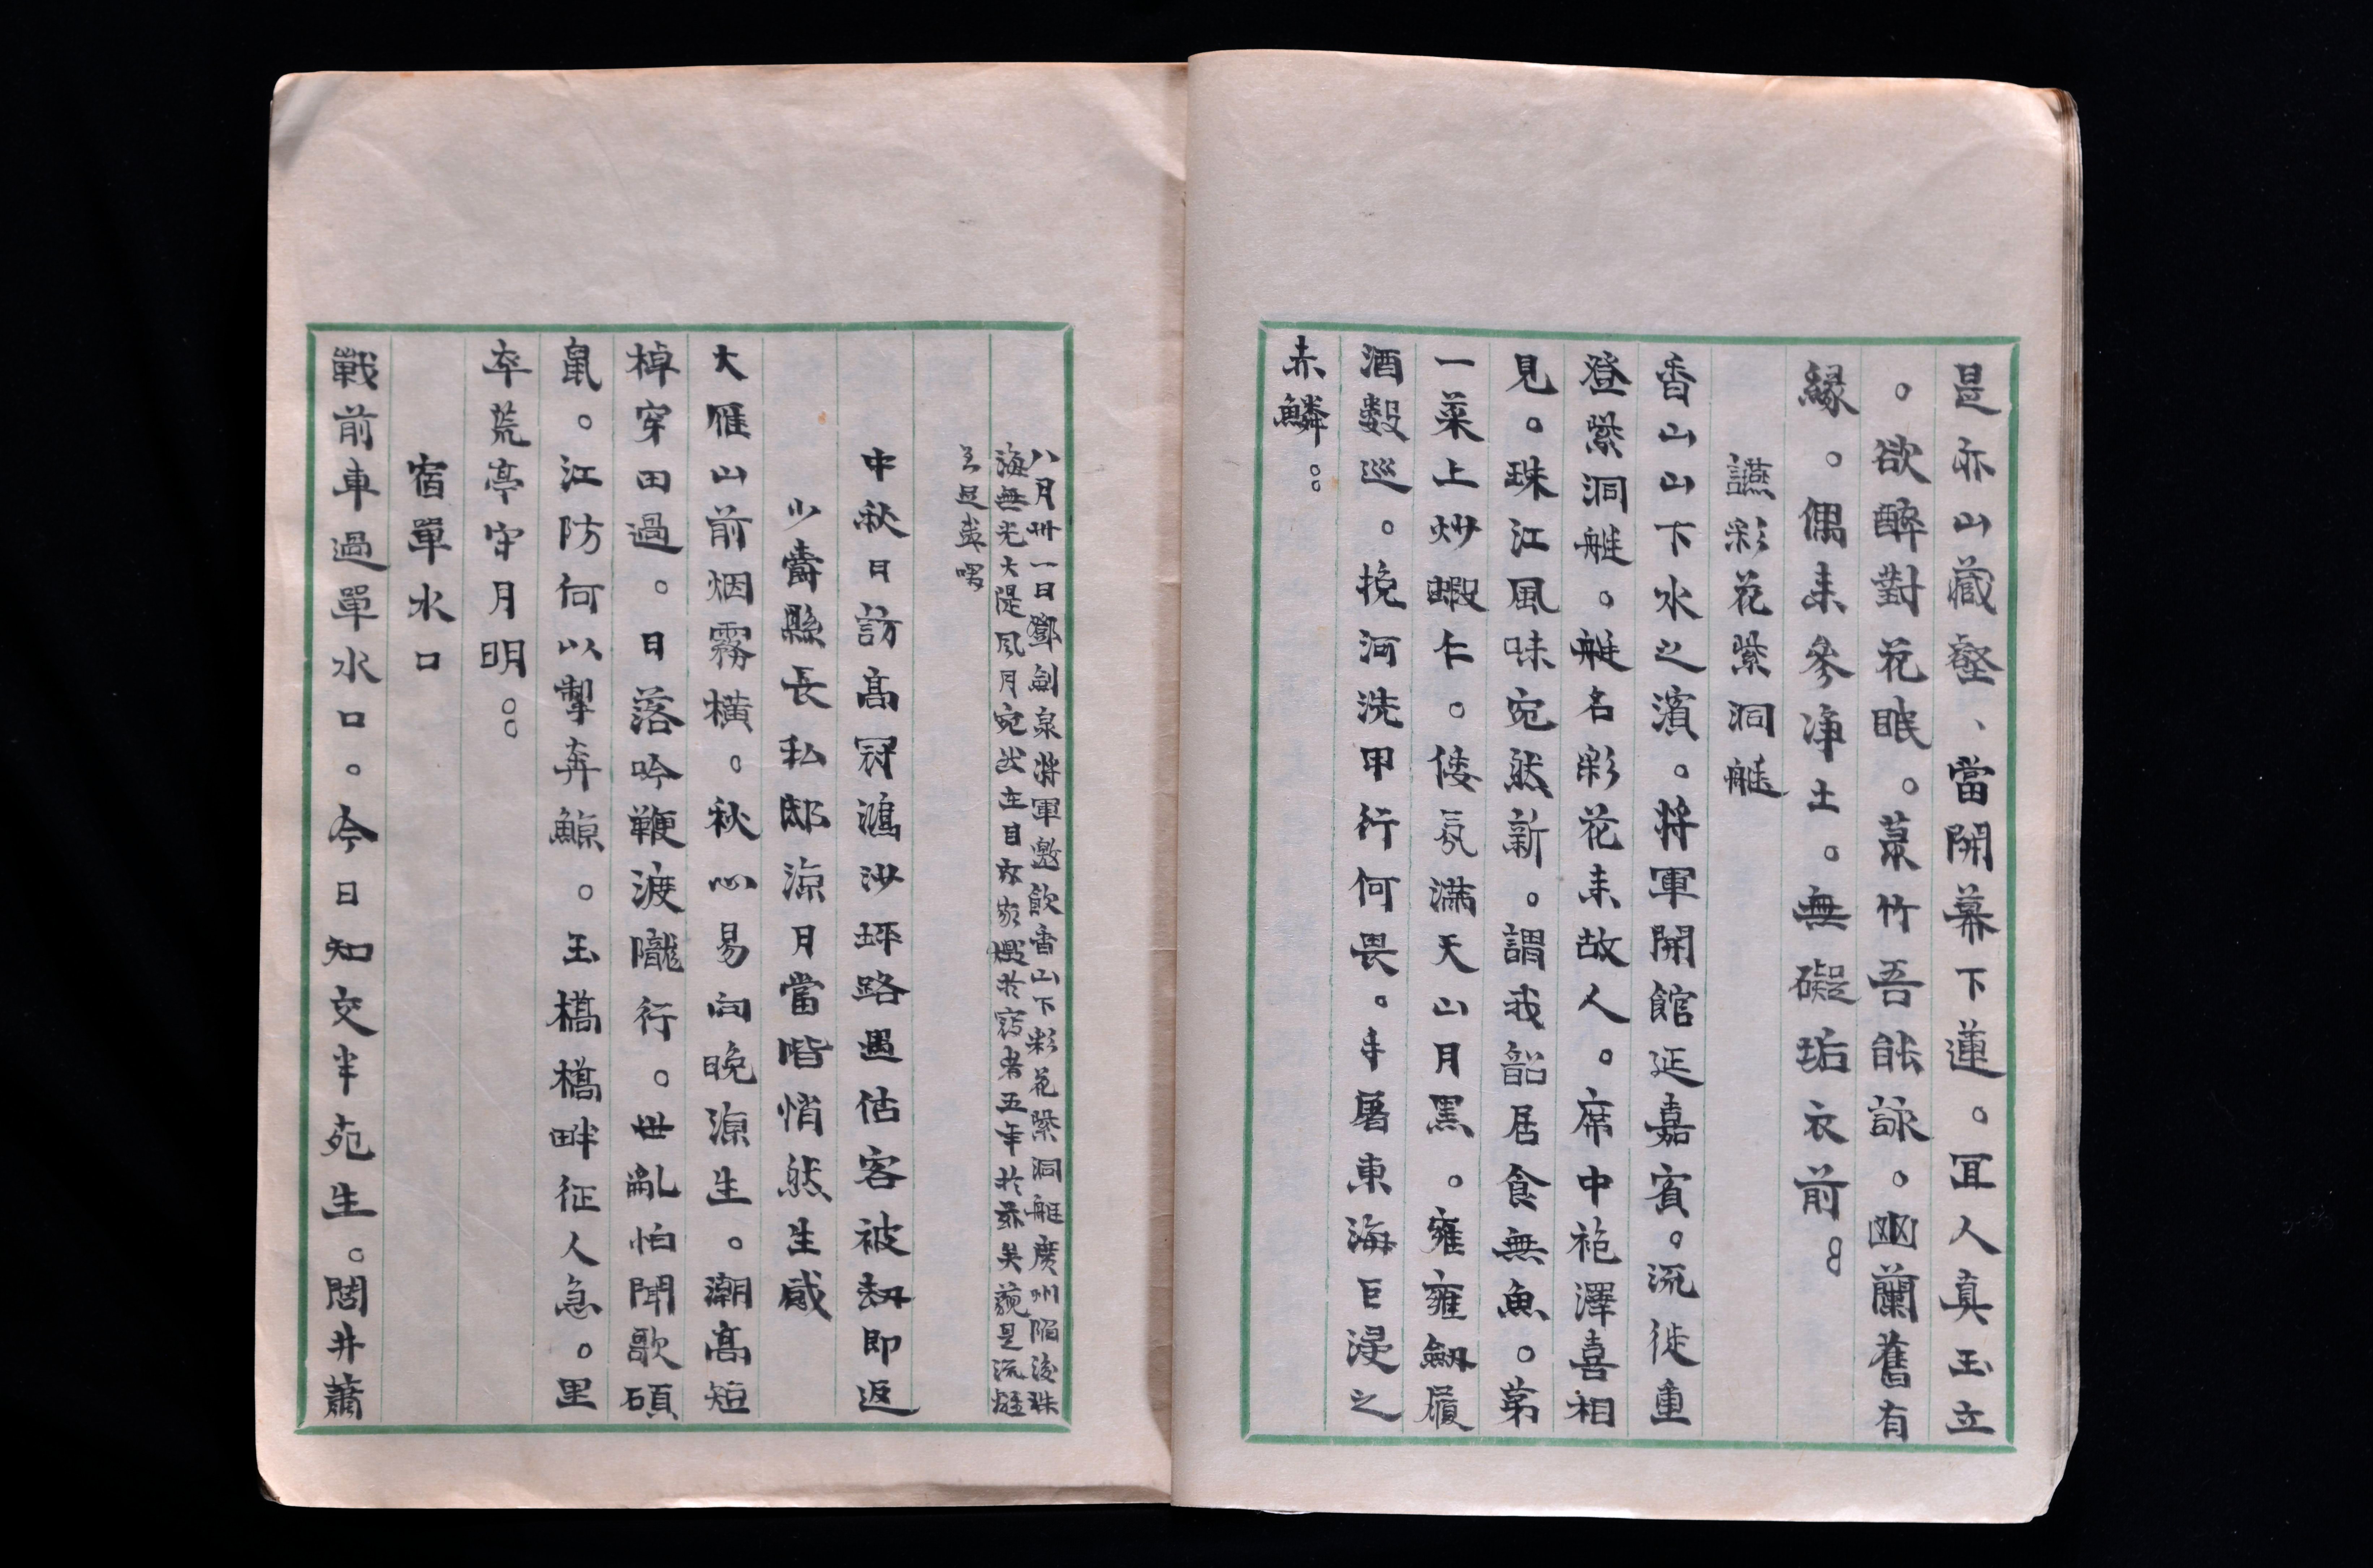 是亦山藏壑、當開幕下蓮。冝人真玉立
。欲醉對花眠。菉竹吾能詠。幽蘭舊有
緣。偶来參淨土。無礙垢衣前。
讌彩花紫洞艇
香山山下水之濱。將軍開館延嘉賓。流徙重
登紫洞艇。艇名彩花来故人。席中袍澤喜相
見。珠江風味宛然新。謂我韶居食無魚。第
一菜上炒蝦仁。倭氛滿天山月黑。雍雍劒履
酒数巡。挽河洗甲行何畏。手屠東海巨浸之
赤鱗。
八月卅一日鄧劍泉將軍邀飲香山下彩花紫洞艇廣州陷後珠
海無光大隄風月宛然在目故家燬於竊者五年於茲矣藐是流離
中秋日訪高冠鴻沙坪路遇估客被刼即返
少騫縣長私邸凉月當階悄然生感
大雁山前烟霧橫。秋心易向晚凉生。潮高短
棹穿田過。日落吟鞭渡隴行。世亂怕聞歌碩
鼠。江防何以掣奔鯨。玉橋橋畔征人急。里
卒荒亭守月明。
宿單水口
戰前車過單水口。今日知交半死生。閭井蕭